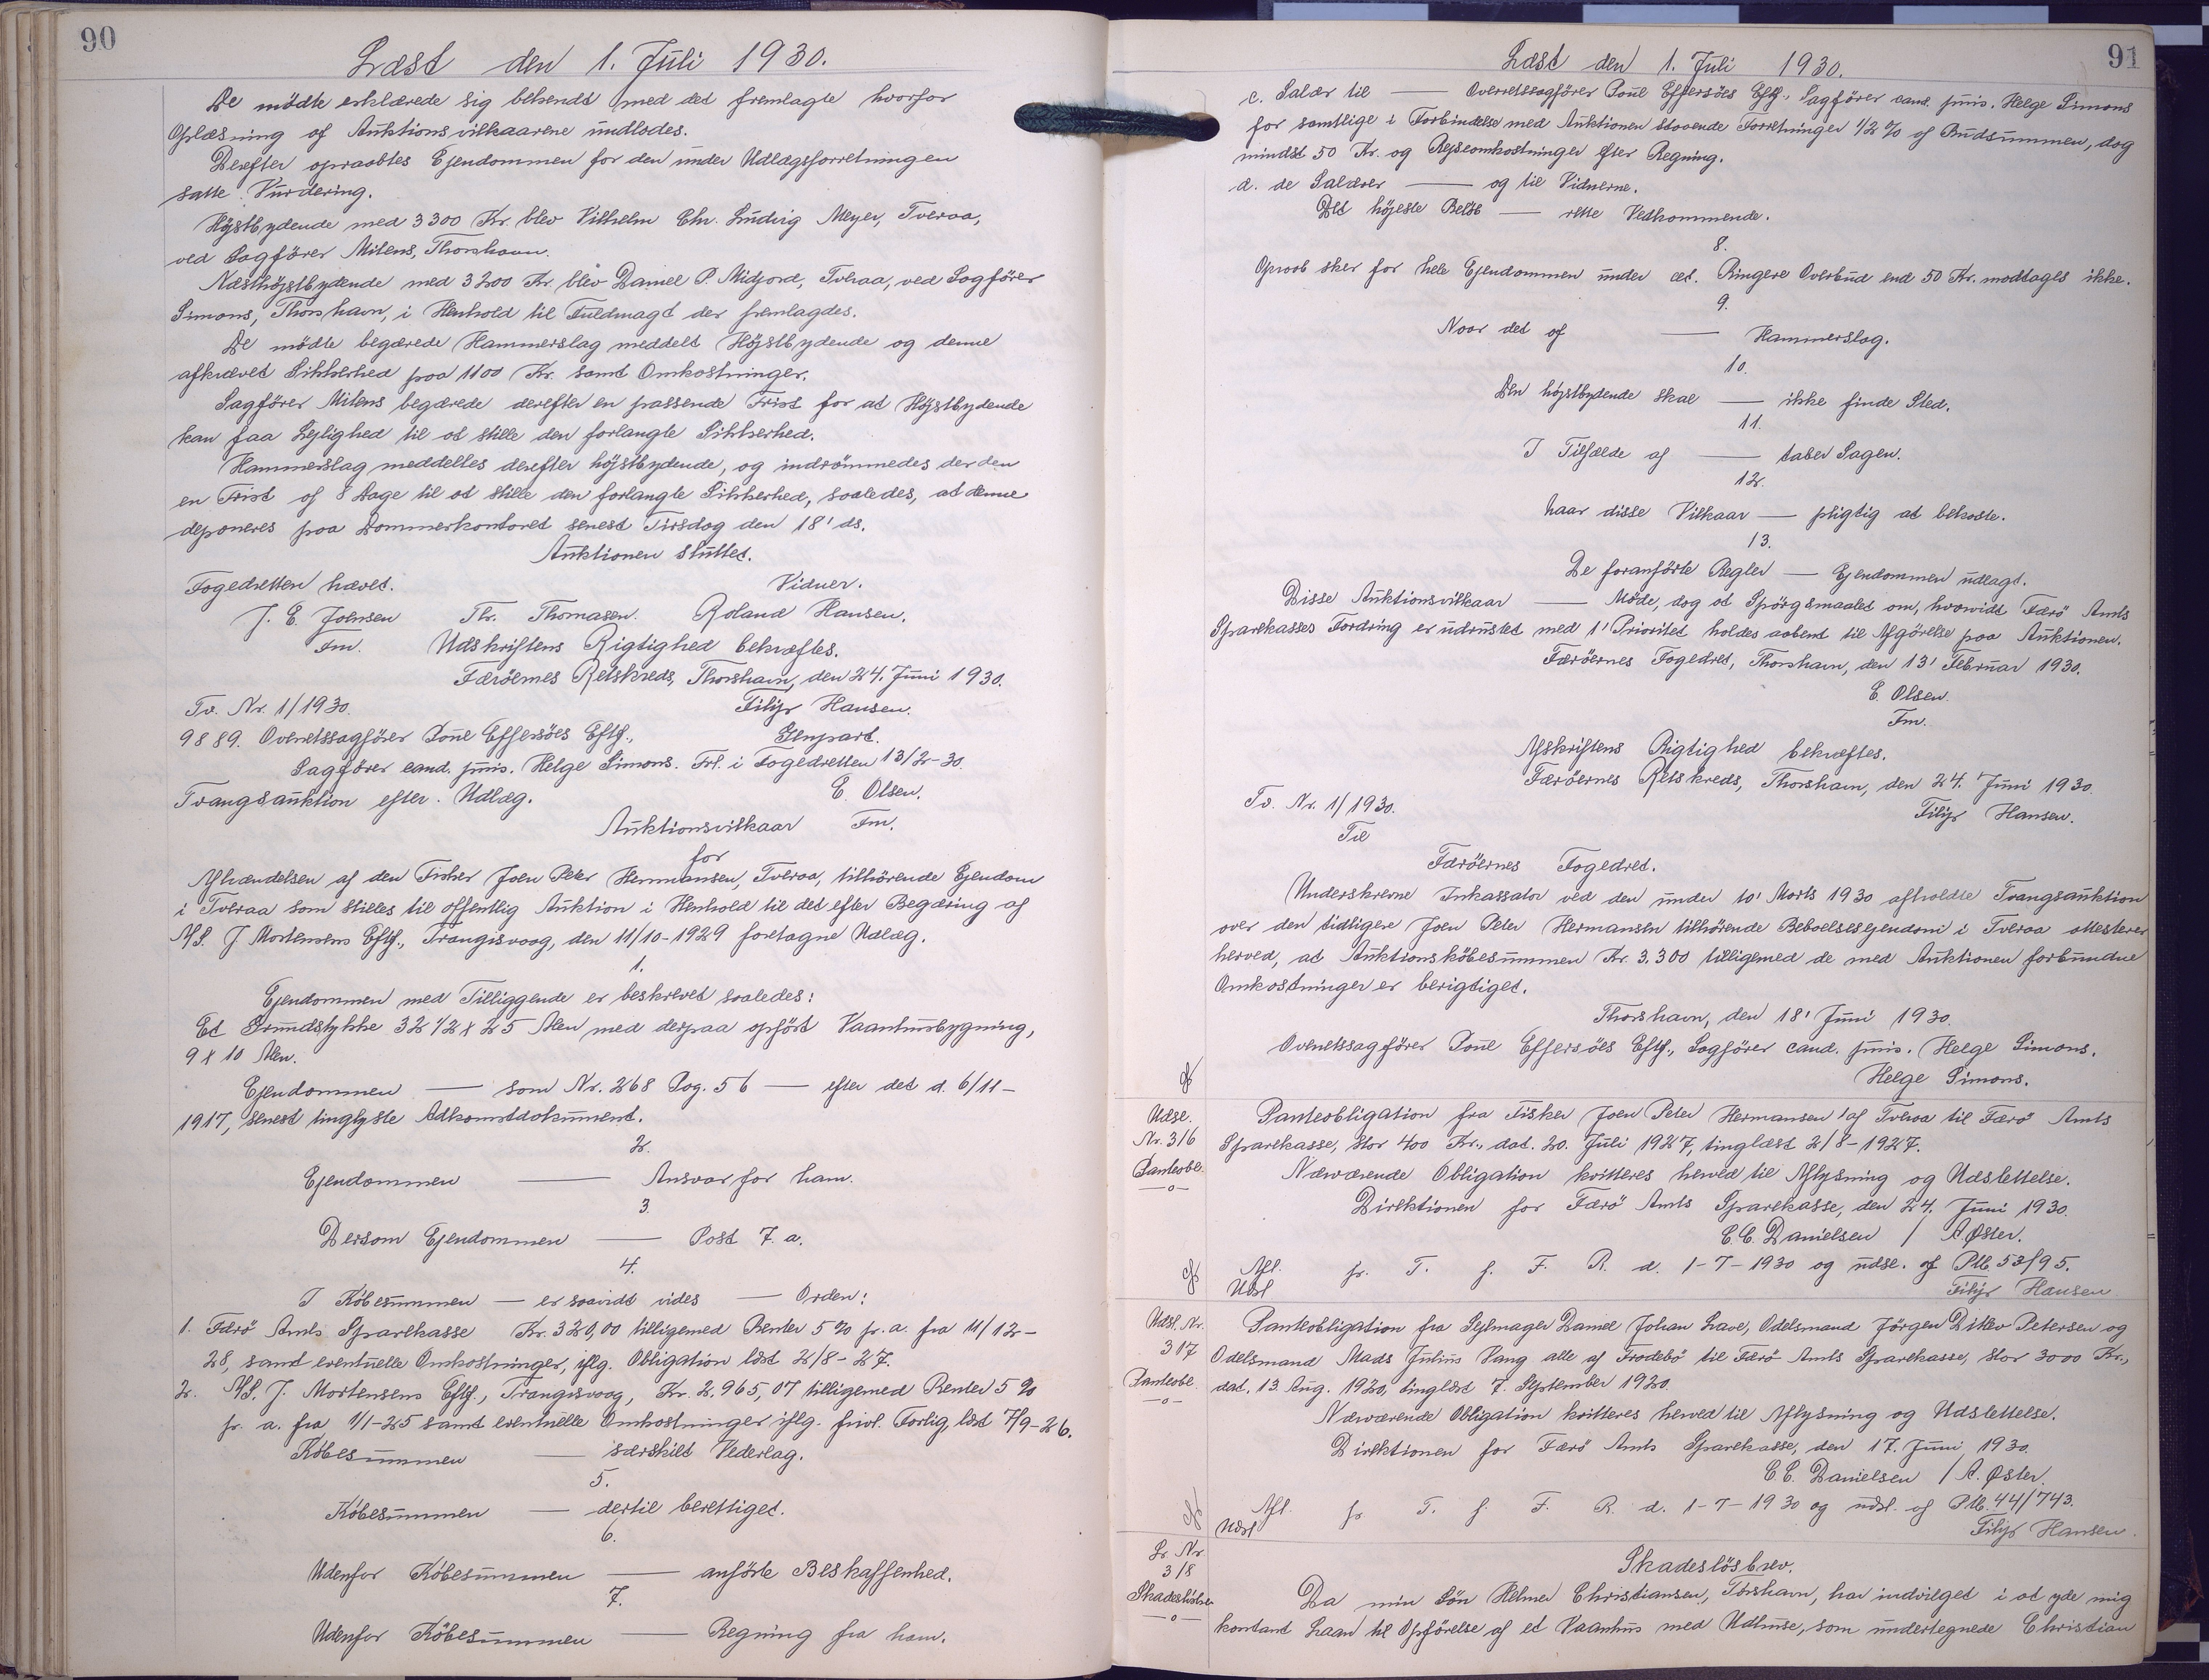 90
Læst den 1. Juli 1930.
De mödte erklærede sig bekendt med det fremlagte hvorfor
Oplæsning af Auktionsvilkaarene undlodes.
Derefter opraabtes Ejendommen for den under Udlægsforretningen
satte Vurdering.
Höjstbydende med 3300 Kr. blev Vilhelm Chr. Ludvig Meyer, Tveraa,
ved Sagförer Mitens, Thorshavn.
Næsthöjstbydende med 3200 Kr. blev Daniel P. Midjord, Tveraa, ved Sagförer
Simons, Thorshavn, i Henhold til Fuldmagt der fremlagdes.
De mödte begærede Hammerslag meddelt Höjstbydende og denne
afkrævet Sikkerhed paa 1100 Kr. samt Omkostninger.
Sagförer Mitens begærede derefter en passende Frist for at Höjstbydende
kan faa Lejlighed til at stille den forlangte Sikkerhed.
Hammerslag meddeltes derefter höjstbydende, og indrömmedes der den
en Frist af 8 Dage til at stille den forlangte Sikkerhed, saaledes, at denne
deponeres paa Dommerkontoret senest Tirsdag den 18' ds.
Auktionen sluttet.
Fogedretten hævet. Vidner.
J. E. Joensen Th. Thomasen. Roland Hansen.
Fm. Udskriftens Rigtighed bekræftes.
Færöernes Retskreds, Thorshavn, den 24. Juni 1930.
Tv. Nr. 1/1930. Filip Hansen.
9889. Overretssagförer Poul Effersöes Eftf., Genpart.
Sagförer cand. juris. Helge Simons. Frl. i Fogedretten 13/2-30.
Tvangsauktion efter Udlæg. E. Olsen.
Auktionsvilkaar Fm.
for
Afhændelsen af den Fisker Joen Peter Hermansen, Tveraa, tilhörende Ejendom
i Tveraa som stilles til offentlig Auktion i Henhold til det efter Begæring af
A/S. J. Mortensens Eftf., Trangisvaag, den 11/10-1929 foretagne Udlæg.
1.
Ejendommen med Tilliggende er beskrevet saaledes:
Et Grundstykke 32 1/2 x 25 Alen med derpaa opfört Vaaningsbygning,
9 x 10 Alen.
Ejendommen — som Nr. 268 Pag. 56 — efter det d. 6/11-
1917, senest tinglyste Adkomstdokument.
2.
Ejendommen — Ansvar for ham.
3.
Dersom Ejendommen — Post 7. a.
4.
I Köbesummen — er saavidt vides — Orden:
1. Færö Amts Sparekasse Kr. 320,00 tilligemed Renter 5 % p. a. fra 11/12-
28, samt eventuelle Omkostninger, iflg. Obligation læst 2/8-27.
2. A/S. J. Mortensens Eftf., Trangisvaag, Kr. 2.965,07 tilligemed Renter 5 %
p. a. fra 1/1-25 samt eventuelle Omkostninger iflg. frivl. Forlig, læst 7/9-26.
Köbesummen — særskilt Vederlag.
5.
Köbesummen — dertil berettiget.
6.
Udenfor Köbesummen — anförte Beskaffenhed.
7.
Udenfor Köbesummen — Regning fra ham.
91
Læst den 1. Juli 1930.
c. Salær til — Overretssagförer Poul Effersöes Eftf., Sagförer cand. juris. Helge Simons
for samtlige i Forbindelse med Auktionen staaende Forretninger 1/2 % af Budsummen, dog
mindst 50 Kr. og Rejseomkostninger efter Regning.
d. de Salærer — og til Vidnerne.
Det höjeste Belöb — rette Vedkommende.
8.
Opraab sker for hele Ejendommen under eet. Ringere Overbud end 50 Kr. modtages ikke.
9.
Naar det af — Hammerslag.
10.
Den höjstbydende skal — ikke finde Sted.
11.
I Tilfælde af — taber Sagen.
12.
haar disse Vilkaar — pligtig at bekoste.
13.
De foranförte Regler — Ejendommen udlagt.
Disse Auktionsvilkaar — Möde, dog at Spörgsmaalet om, hvorvidt Færö Amts
Sparekasses Fordring er udrustet med 1' Prioritet holdes aabent til Afgörelse paa Auktionen.
Færöernes Fogedret, Thorshavn, den 13' Februar 1930.
E. Olsen.
Fm.
Afskriftens Rigtighed bekræftes.
Færöernes Retskreds, Thorshavn, den 24. Juni 1930.
Tv. Nr. 1/1930. Filip Hansen.
Til
Færöernes Fogedret.
Underskrevne Inkassator ved den under 10' Marts 1930 afholdte Tvangsauktion
over den tidligere Joen Peter Hermansen tilhörende Beboelsesejendom i Tveraa attesterer
herved, at Auktionsköbesummen Kr. 3.300 tilligemed de med Auktionen forbundne
Omkostninger er berigtiget.
Thorshavn, den 18' Juni 1930.
Overretssagförer Poul Effersöes Eftf., Sagförer cand. juris. Helge Simons.
Helge Simons.
Udsl. Nr. 316 Panteobl.
Panteobligation fra Fisker Joen Peter Hermansen af Tveraa til Færö Amts
Sparekasse, stor 400 Kr., dat. 20. Juli 1927, tinglæst 2/8-1927.
Nærværende Obligation kvitteres herved til Aflysning og Udslettelse.
Direktionen for Færö Amts Sparekasse, den 24. Juni 1930.
C. C. Danielsen / A Øster.
Afl. Udsl p. T. f. F. R. d. 1-7-1930 og udsl. af Ptb. 53/95.
Filip Hansen
Udsl. Nr. 317 Panteobl.
Panteobligation fra Sejlmager Daniel Johan Lave, Odelsmand Jörgen Ditlev Petersen og
Odelsmand Mads Julius Vang alle af Frodebö til Færö Amts Sparekasse, stor 3000 Kr.,
dat. 13. Aug. 1920, tinglæst 7. September 1920.
Nærværende Obligation kvitteres herved til Aflysning og Udslettelse.
Direktionen for Færö Amts Sparekasse, den 17. Juni 1930.
C. C. Danielsen / A. Øster.
Afl. Udsl p. T. f. F. R. d. 1-7-1930 og udsl. af Ptb. 44/743.
Filip Hansen.
Lr. Nr. 318 Skadeslösbr
Skadeslösbrev.
Da min Sön Helmer Christiansen, Tórshavn, har indvilget i at yde mig
kontant Laan til Opförelse af et Vaanhus med Udhuse, som undertegnede Christian